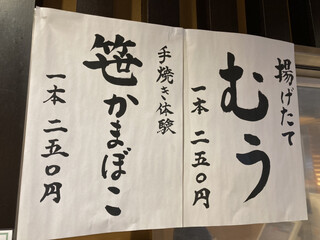 揚げたて
むう
一本 二五〇円
手焼き体験
笹かまぼこ
一本 二五〇円